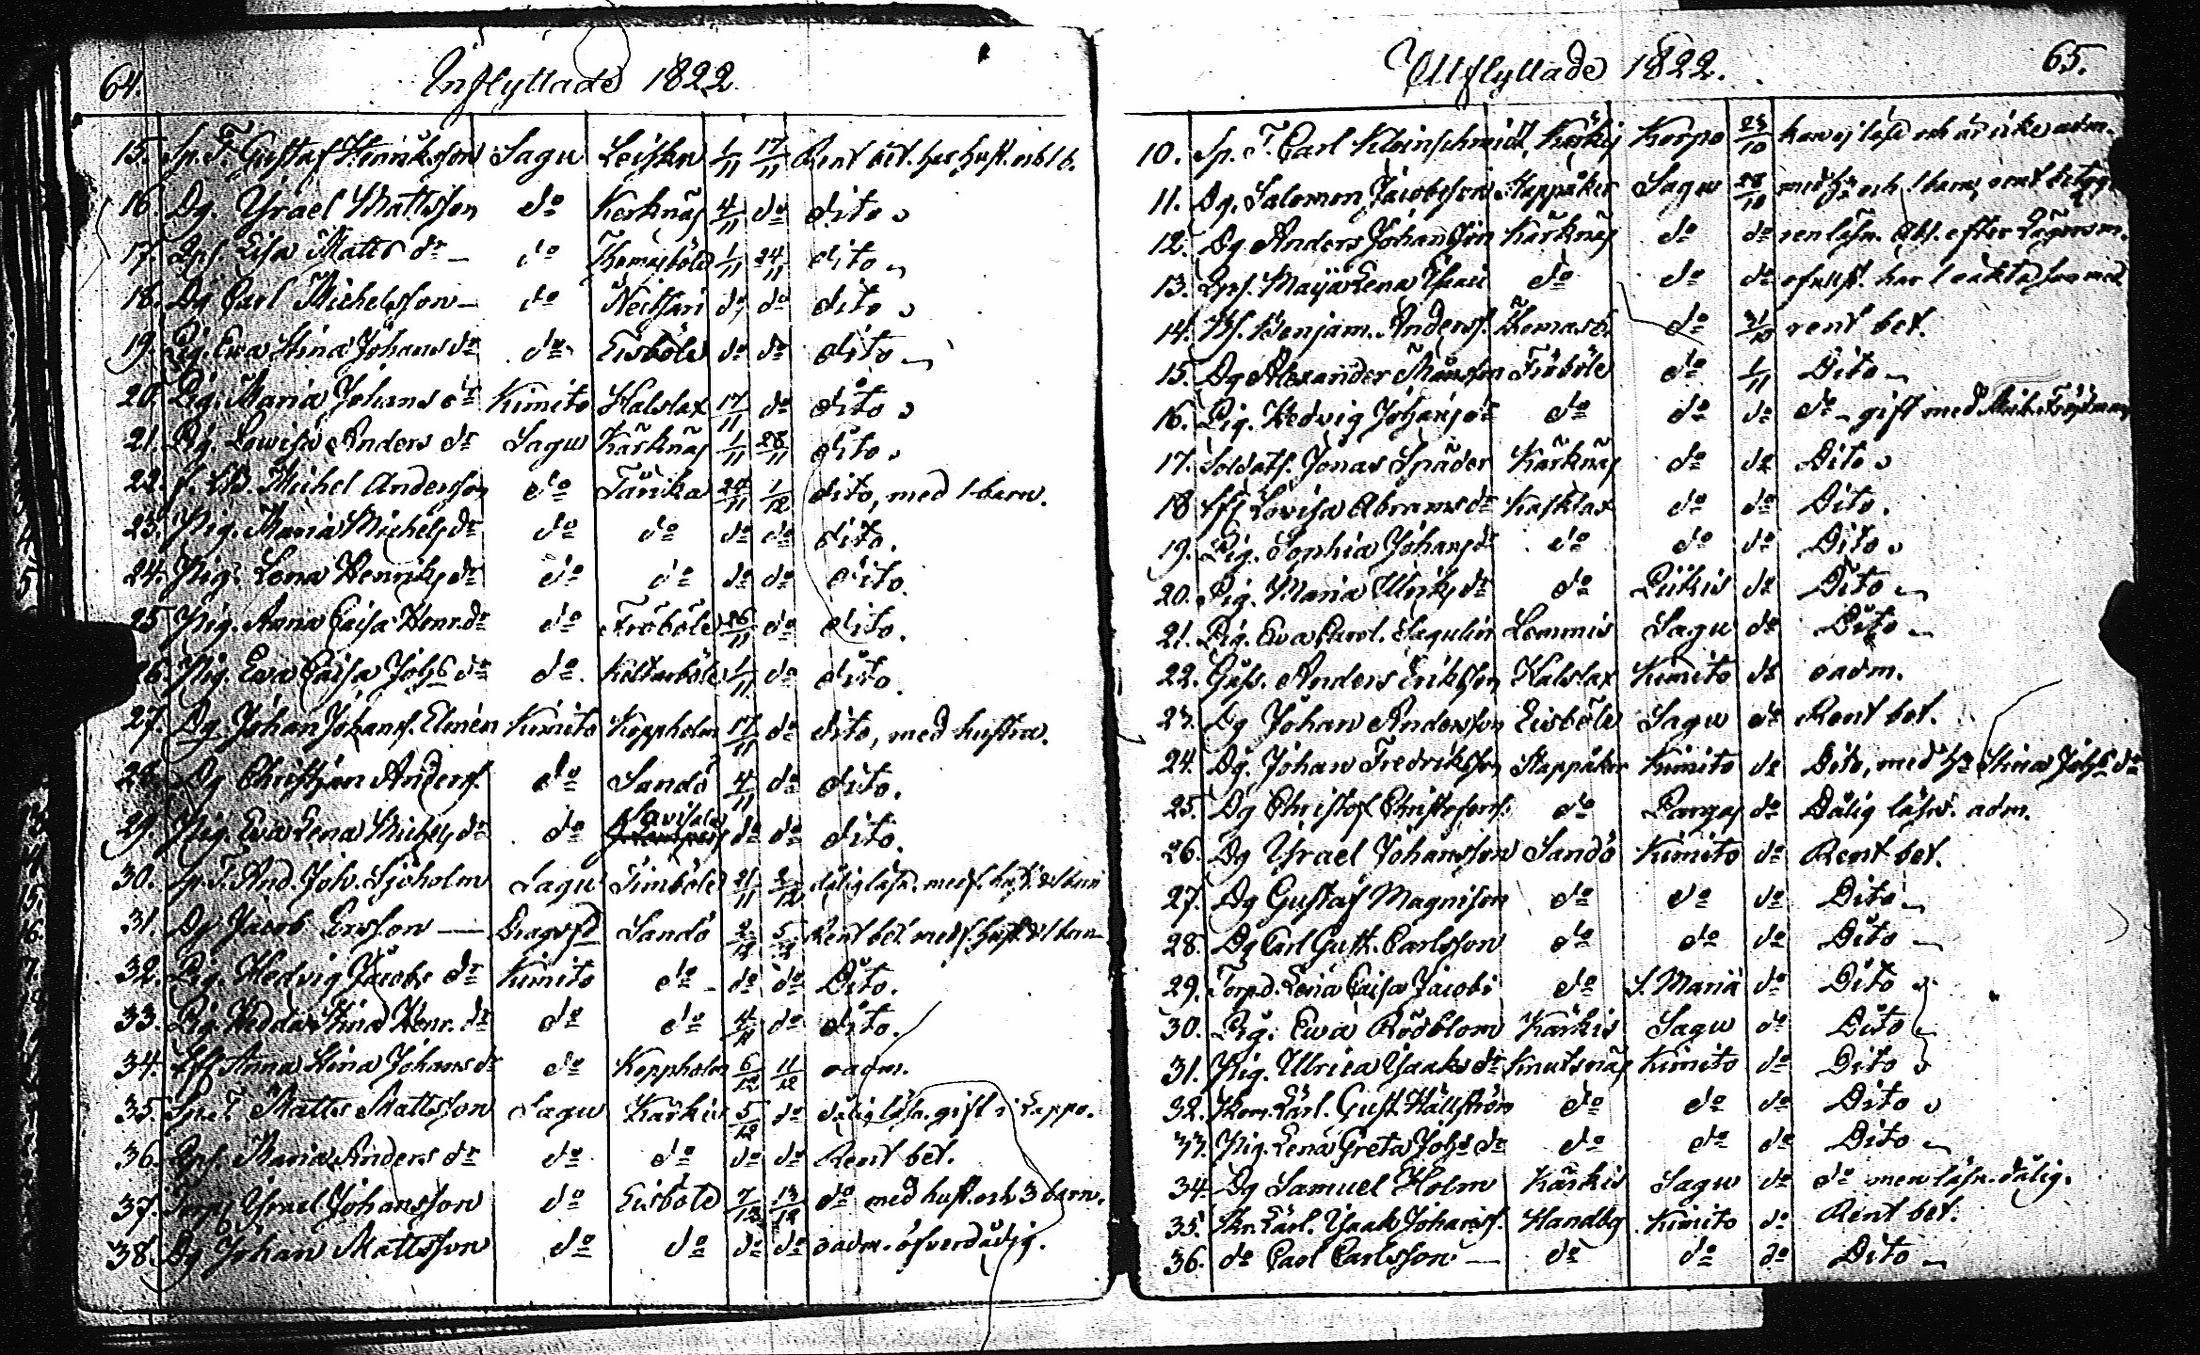 64.
Inflyttade 1822
15. Sp. T. Gustaf Henriksson Sagu Leiska 1/11 17/11 Rent bet. har hust. och 1 b.
16. Dg. Ysrael Mattsson do Kerknäs 4/11 do dito
17. Lisa Matts dr do 1/11 24/11 dito
18. Dg Carl Michelsson do do do dito
19. Pig. Ewa Stina Johans dr do Eisböle do do dito
20. Pig. Maria Johans dr Kimito Kalslax 17/11 do dito
21. Pig. Lowisa Anders dr Sagu Kärknäs 1/11 28/11 dito
22. Michel Andersson do 24/11 1/12 dito, med 1 barn.
23. Pig. Maria Michels dr do do do do dito.
24. Pig. Lena Henriks dr do do do do dito.
25 Pig. Anna Caisa Henr. dr do Fröböle 26/11 do dito.
26. Pig. Ewa Caisa Johs dr do 1/11 do dito.
27. Dg. Johan Johanss. Elmén Kimito Koppholm 17/11 do dito, med hustru.
28. Dg Christian Anderss. do Sandö 4/11 do dito.
29. Pig. Ewa Lena Michels dr do do do dito.
30. Sp. T. And. Joh. Sjöholm Sagu Fimböle 21/11 2/12 dålig läsn. med
31. Dg Jacob Ersson Dragsfd Sandö 2/12 5/12 Rent bet. med
32. Pig. Hedvig Jacobs dr Kimito do do do Dito.
33. Pig. Hedda Stina Henr. dr do do 4/12 do dito.
34. Anna Stina Johans dr do Koppholm 6/12 11/12 oadm.
35. Matts Mattsson Sagu Kärkis 5/12 do dålig läsn. gift i
36. Maria Anders dr do do do do Rent bet.
37. Torp. Ysrael Johansson do Eisböle 7/12 13/12 do med hust. och 3 barn.
38. Dg Johan Mattsson do do do do oadm. öfverdådig.
Utflyttade 1822.
65.
10. Sp. T. Carl Kleinschmidt, Kärkis Korpo 25/10 kan ej läsa och är icke adm.
11. Dg. Salomon Jacobsson Stappåker Sagu 28/10 med och 1 barn,
12. Dg Anders Johansson Kärknäs do do ren läsn. efter
13. Maija Lena do do do har 1 oäkta son med
14. Benjam. Anderss. do 31/10 rent bet.
15. Dg Alexander Fröböle do 1/11 Dito
16. Pig. Hedvig Johans dr do do do do gift med
17. Soldats. Jonas Späder Kärknäs do do Dito
18 Lovisa Abrams dr Kalslax do do Dito.
19. Pig. Sophia Johans dr do do do Dito
20. Pig. Maria Ulriks dr do Piikis do Dito
21. Pig. Ewa Carol. Sagulin Lemnis Sagu do Dito
22. Anders Eriksson Kalslax Kimito do oadm.
23. Dg Johan Andersson Eisböle Sagu do Rent bet.
24. Dg. Johan Fredriksson Stappåker Kimito do Dito, med Stina Johs dr
25. Dg Christof Christofers. do Pargas do Dålig läsn. adm.
26. Dg Ysrael Johansson Sandö Kimito do Rent bet.
27. Dg Gustaf Magnison do do do Dito
28. Dg Carl Gust. Carlsson do do do Dito
29. Torp.d. Lena Caisa Jacobs do S. Mariä do Dito
30. Pig. Ewa Rödblom Kärkis Sagu do Dito
31. Pig. Ulrica Ysaks dr Knutsnäs Kimito do Dito
32. Gust. Hällström do do do Dito
33. Pig. Lena Greta Johs dr do do do Dito
34. Dg Samuel Holm Kärkis Sagu do do men läsn. dålig.
35. Ysaak Johanss. Handbg Kimito do Rent bet.
36. do Carl Carlsson do do do Dito